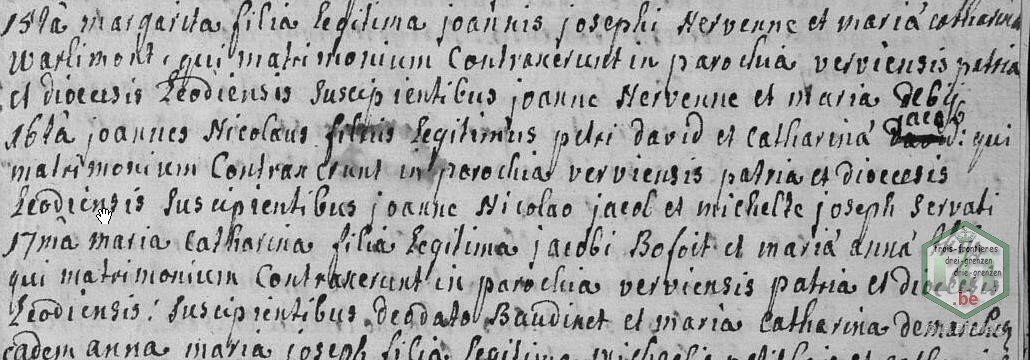 15tâ margarita filia legitima joannis josephi Hervenne et mariâ catharina
Warlimont, qui matrimonium Contraxerunt in parochia verviensis patria
et dioecesis Leodiensis Suscipientibus joanne Hervenne et maria
jacob
16tâ joannes Nicolaus filius legitimus petri david et catharinâ qui
matrimonium Contraxerunt in parochia verviensis patria et dioecesis
Leodiensis Suscipientibus joanne Nicolao jacob et michelle joseph Servati
17mâ maria Catharina filia legitima jacobi Bosoit et mariâ annâ
qui matrimonium Contraxerunt in parochia verviensis patria et dioecesis
Leodiensis: Suscipientibus deodato Baudinet et maria Catharina
eadem anna maria joseph filia legitima Michaelis
trois-frontieres
drei-grenzen
drie-grenzen
.be